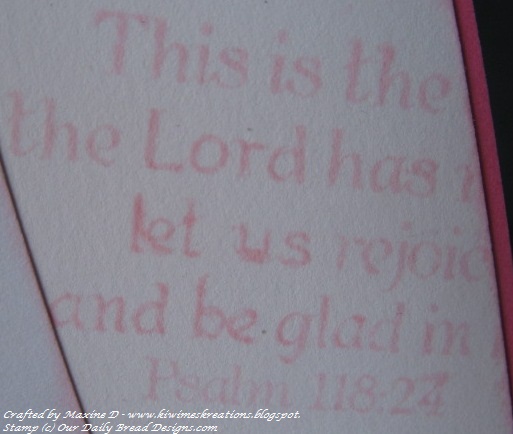 This is the
the Lord has
let us rejoic
and be glad in
Psalm 118:24
Crafted by Maxine D - www.kiwimeskreations.blogspot.
Stamp (c) Our Daily Bread Designs.com